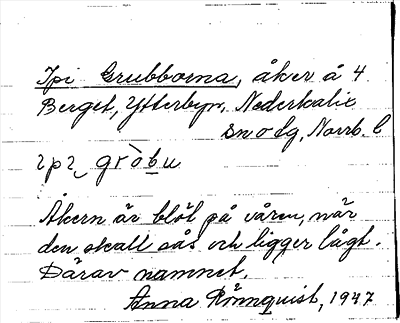 Ipi Grubborna, åker å 4
Berget, Ytterbyn, Nederkalix
sn o lg, Norrb. l
ɩpɩ gròbu
Åkern är blöt på våren, när
den skall sås och ligger lågt.
Därav namnet.
Anna Rönnquist, 1947